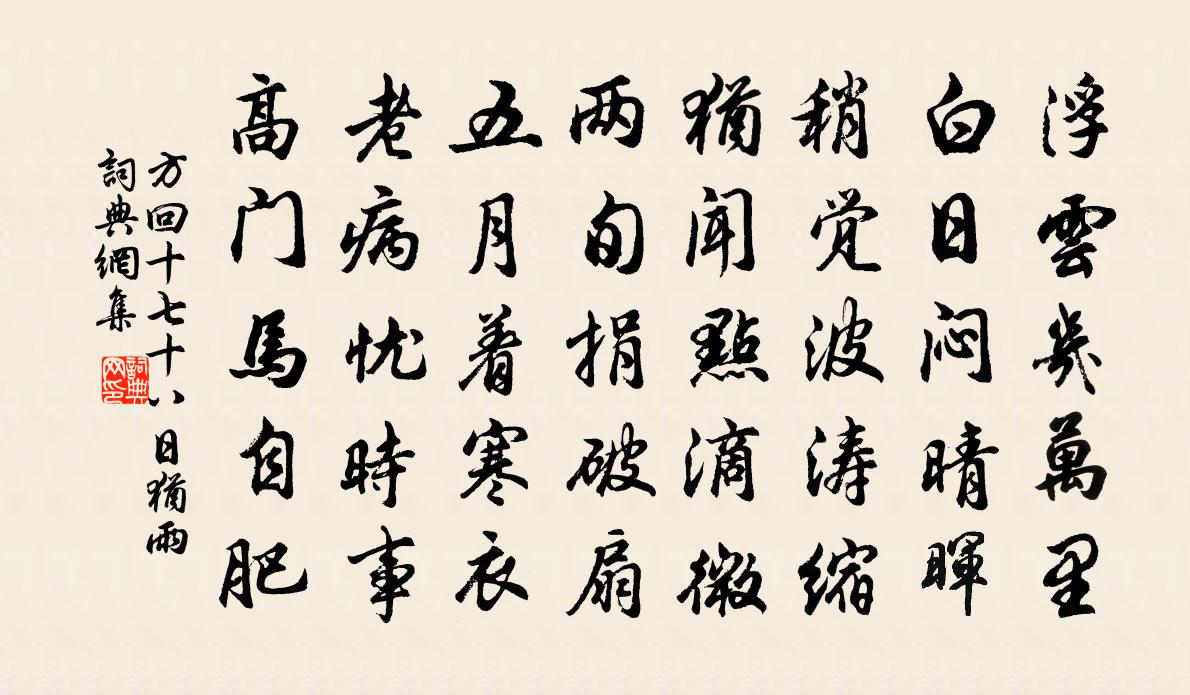 浮雲幾萬里
白日闷晴暉
稍觉波涛缩
猶聞點滴微
两旬捐破扇
五月着寒衣
老病忧時事
高门馬自肥
方回十七十八日猶雨
詞典網集
詞典网印